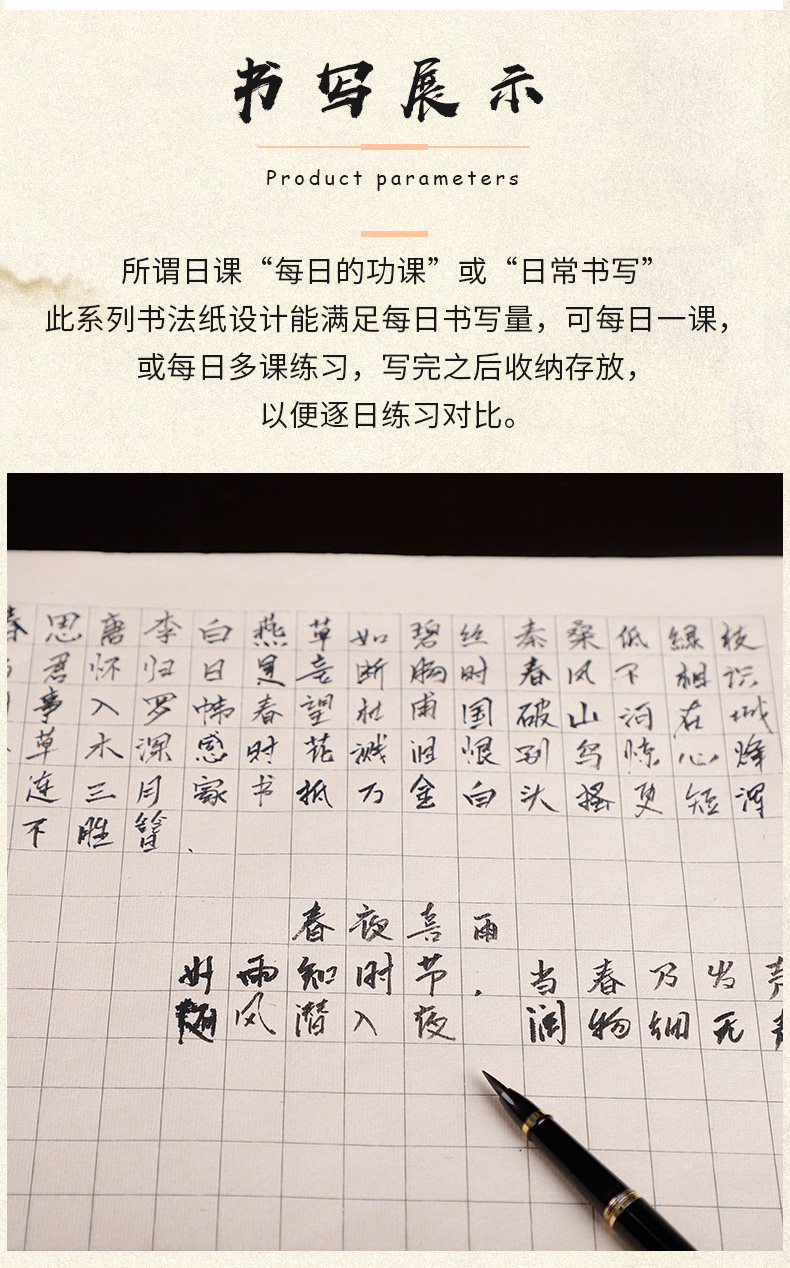 书写展示
Product parameters
所谓日课“每日的功课”或“日常书写”
此系列书法纸设计能满足每日书写量，可每日一课，
或每日多课练习，写完之后收纳存放，
以便逐日练习对比。
春思唐李白燕草如碧丝秦桑低緑枝
君怀归日是妾断肠时春风不相识
事入罗帏春望杜甫国破山河在城
草木深感时花溅泪恨别鸟惊心烽
连三月家书抵万金白头搔更短浑
不胜簪.
春夜喜雨
好雨知时节，当春乃发
风潜入夜 润物细无